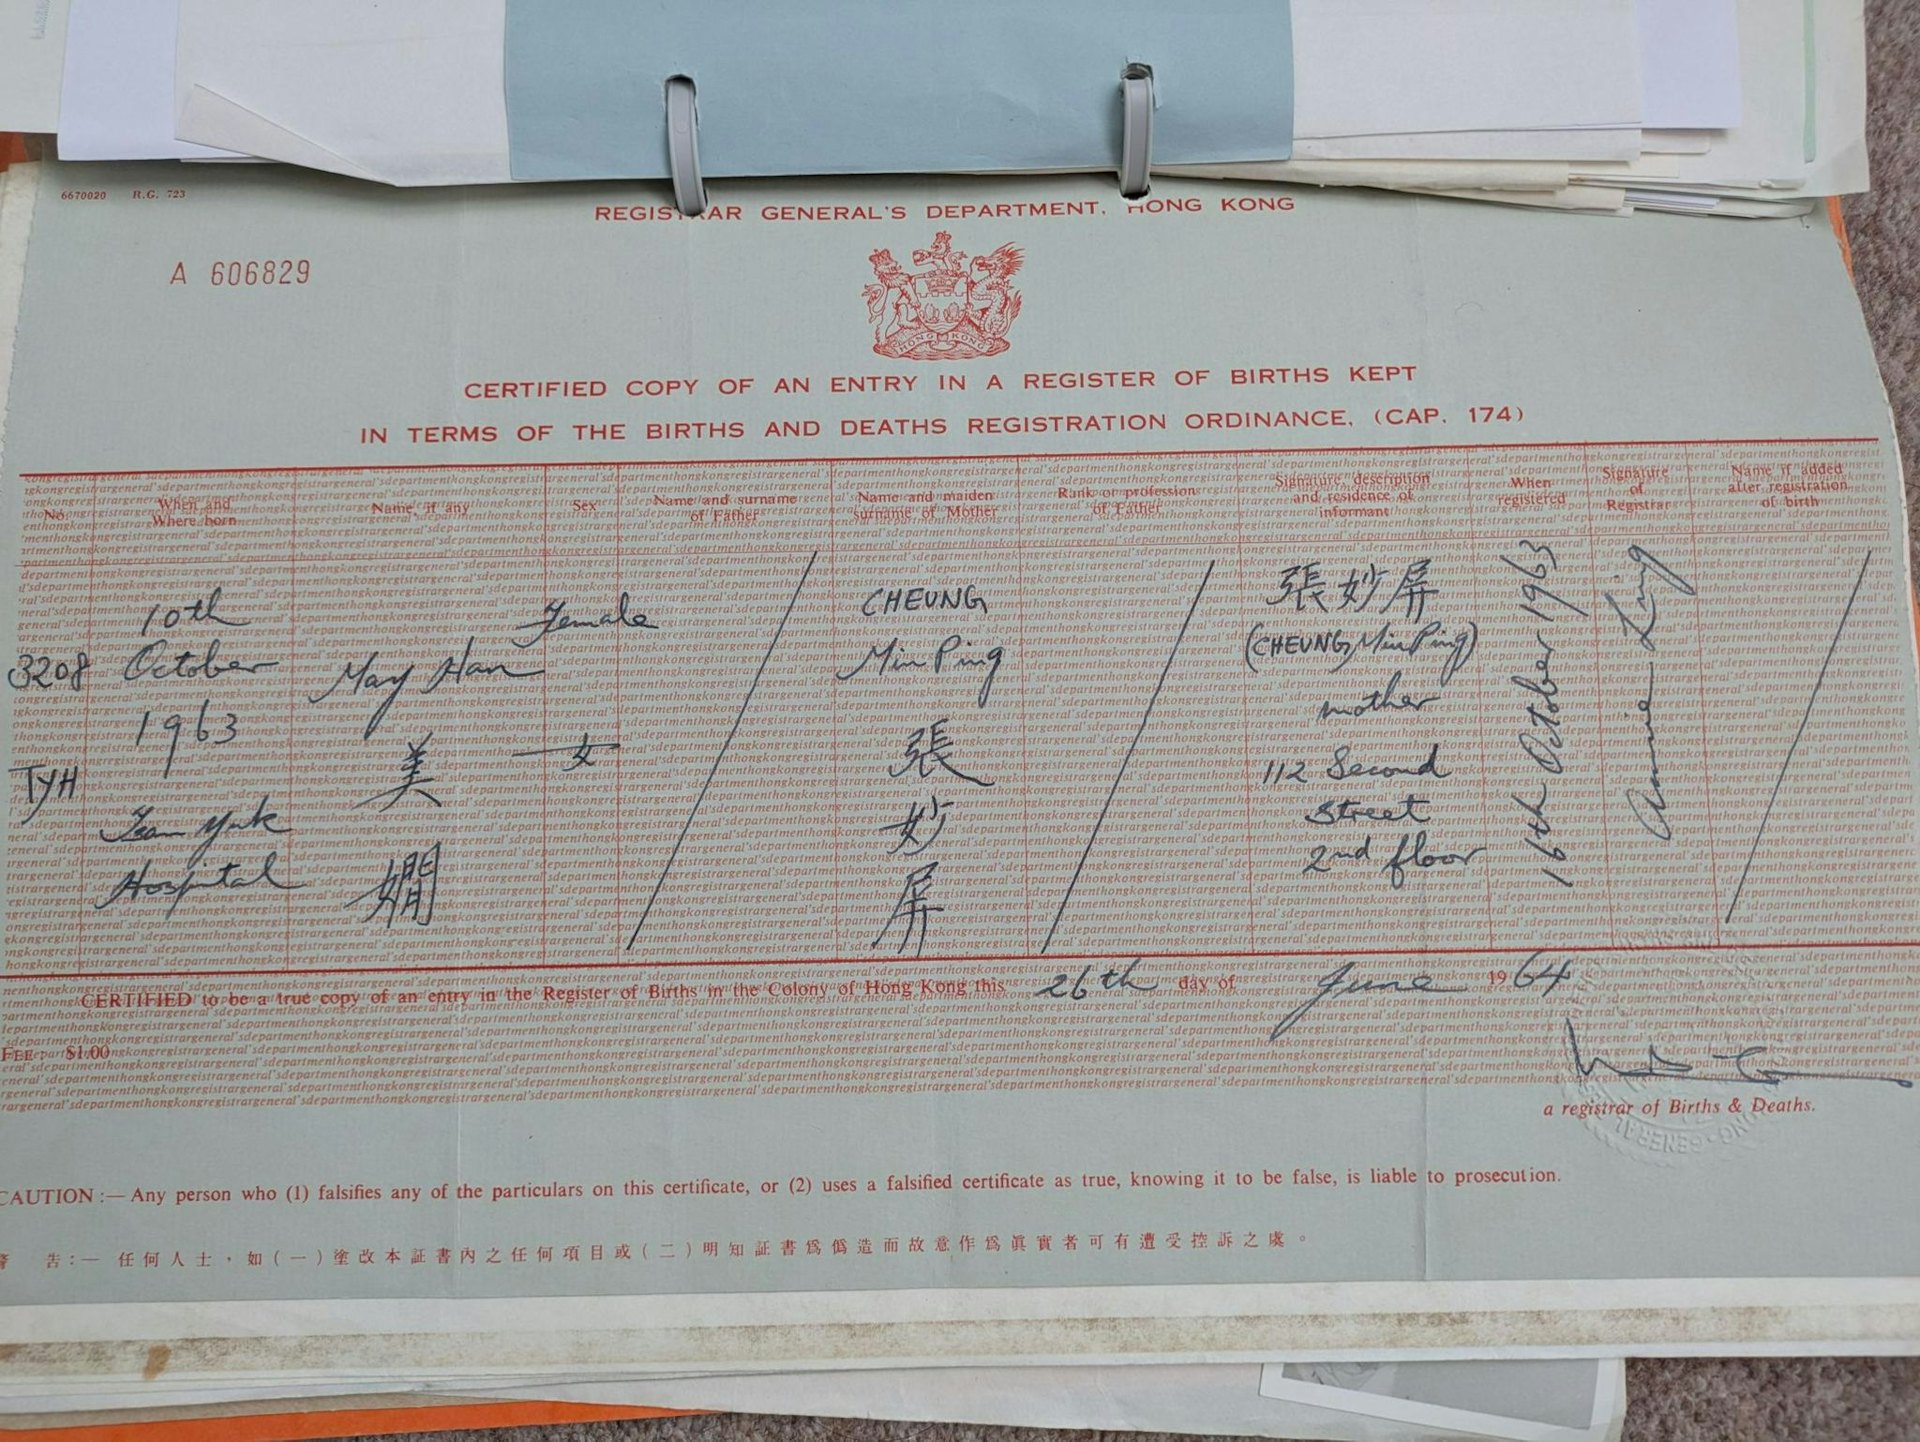 6670020 R.G. 723
REGISTRAR GENERAL'S DEPARTMENT, HONG KONG
A 606829
HONG KONG
CERTIFIED COPY OF AN ENTRY IN A REGISTER OF BIRTHS KEPT
IN TERMS OF THE BIRTHS AND DEATHS REGISTRATION ORDINANCE, (CAP. 174)
No.
When and
Where born
Name, if any
Sex
Name and surname
of Father
Name and maiden
surname of Mother
Rank or profession
of Father
Signature, description
and residence of
informant
When
registered
Signature
of
Registrar
Name if added
after registration
of birth
3208
TYH
10th
October
1963
Tsan Yuk
Hospital
May Han
美
嫻
Female
女
CHEUNG
Min Ping
張
妙
屏
張妙屏
(CHEUNG, Min Ping)
mother
112 Second
Street
2nd floor
16th October 1963
CERTIFIED to be a true copy of an entry in the Register of Births in the Colony of Hong Kong this 26th day of June 1964
FEE $1.00
a registrar of Births & Deaths.
CAUTION :— Any person who (1) falsifies any of the particulars on this certificate, or (2) uses a falsified certificate as true, knowing it to be false, is liable to prosecution.
警 告：— 任何人士，如(一)塗改本証書內之任何項目或(二)明知証書爲僞造而故意作爲眞實者可有遭受控訴之處。